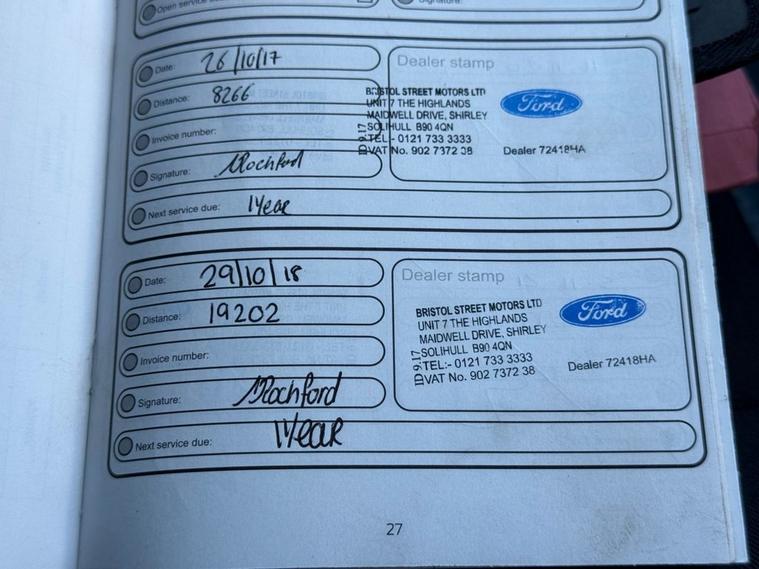 Open service
Signature:
Date: 26/10/17
Distance: 8266
Invoice number:
Signature: Rochford
Next service due: 1Year
Dealer stamp
BRISTOL STREET MOTORS LTD
UNIT 7 THE HIGHLANDS
MAIDWELL DRIVE, SHIRLEY
SOLIHULL B90 4QN
TEL:- 0121 733 3333
VAT No. 902 7372 38
ID 9.17
Ford
Dealer 72418HA
Date: 29/10/18
Distance: 19202
Invoice number:
Signature: Rochford
Next service due: 1Year
Dealer stamp
BRISTOL STREET MOTORS LTD
UNIT 7 THE HIGHLANDS
MAIDWELL DRIVE, SHIRLEY
SOLIHULL B90 4QN
TEL:- 0121 733 3333
VAT No. 902 7372 38
ID 9.17
Ford
Dealer 72418HA
27